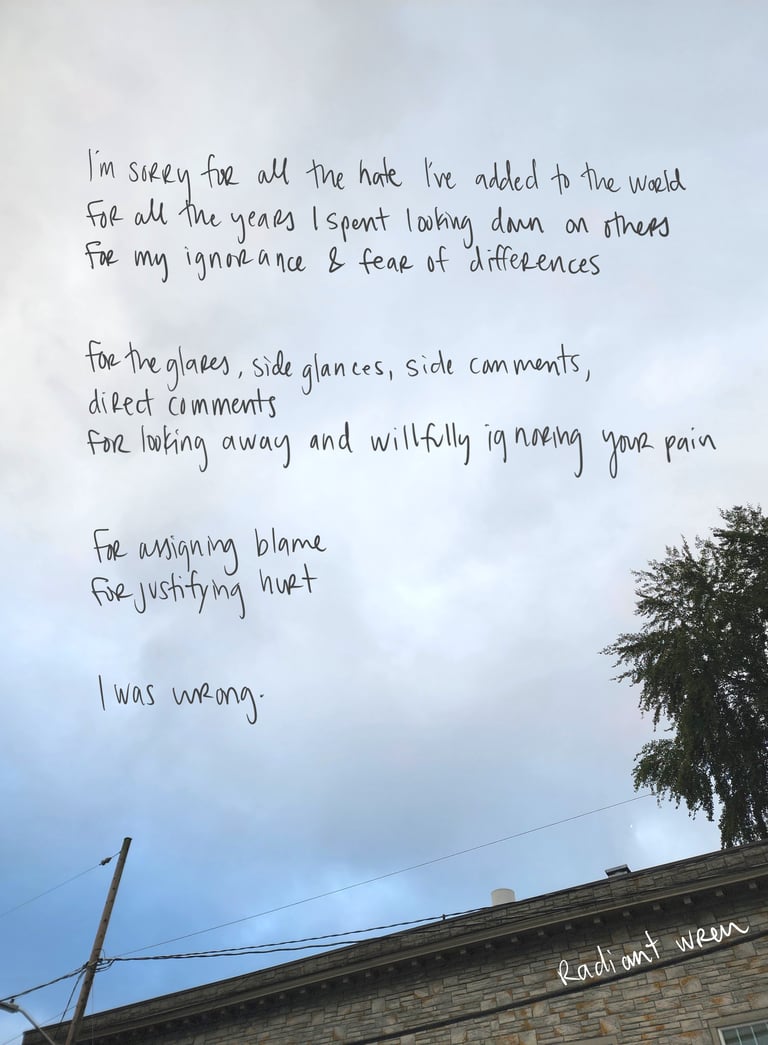 I'm sorry for all the hate I've added to the world
for all the years I spent looking down on others
for my ignorance & fear of differences
for the glares, side glances, side comments,
direct comments
for looking away and willfully ignoring your pain
for assigning blame
for justifying hurt
I was wrong.
Radiant wren